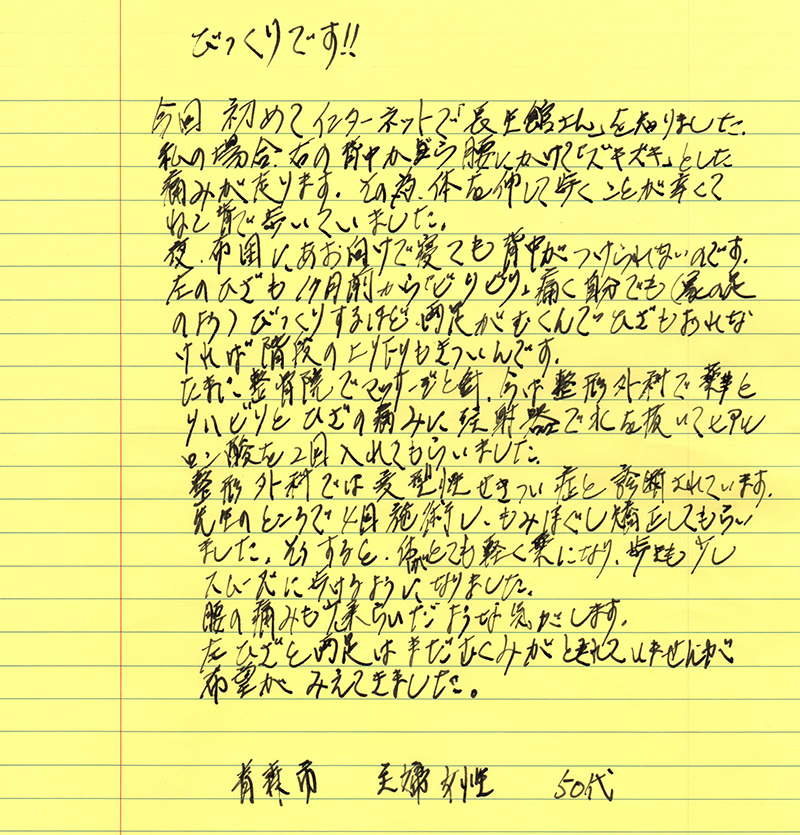 びっくりです!!
今回 初めてインターネットで「長生館さん」を知りました。
私の場合、右の背中から腰にかけて「ズキズキ」とした
痛みが走ります。その為、体を伸して歩くことが辛くて
ねこ背で歩いていました。
夜、布団にあお向けで寝ても背中がつけられないのです。
左のひざも1ヶ月前から「ビリビリ」痛く自分でも(家の足
の方)びっくりするけど、両足がむくんでひざもおれな
ければ階段の上りおりもきついんです。
整骨院でマッサージと針、今は整形外科で薬と
リハビリとひざの痛みに注射器で水を抜いてヒアル
ロン酸を2回入れてもらいました。
整形外科では変型性せきつい症と診断されています。
先生のところで4回施術し、もみほぐし矯正してもらい
ました。そうすると、体がとても軽く楽になり、歩も少し
スムーズに歩けるようになりました。
腰の痛みも らいだような気がします。
左ひざと両足はまだむくみがとれていませんが
希望がみえてきました。
青森市 主婦 女性 50代